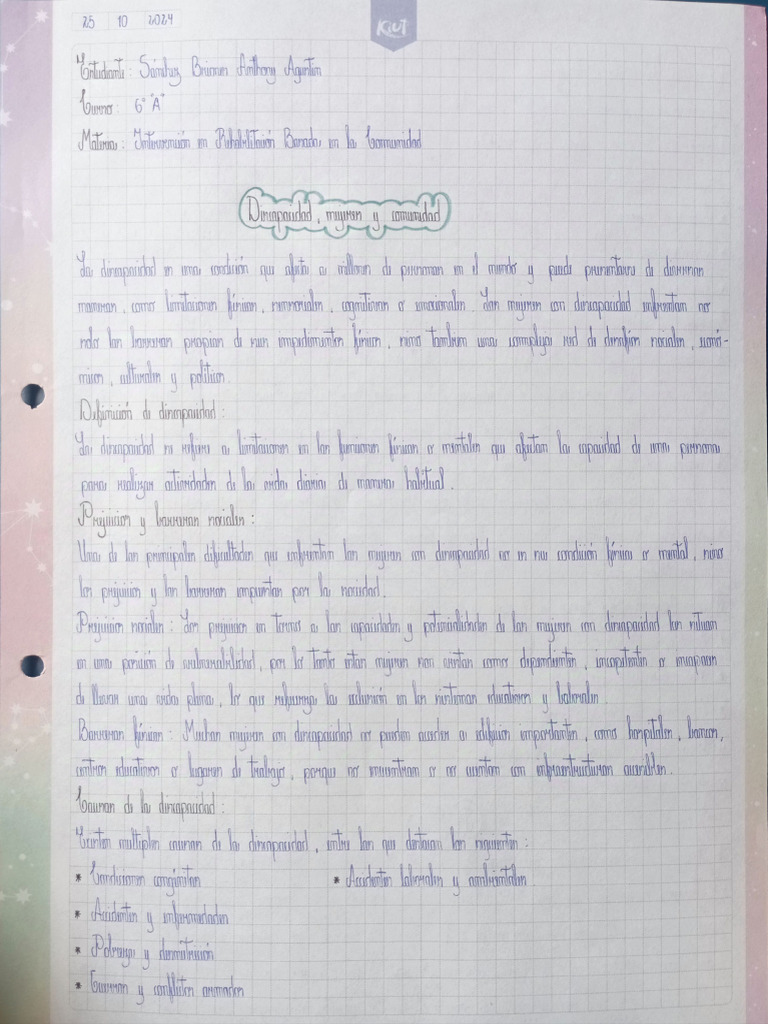 25 10 2024
Kiut
Estudiante: Sánchez Briones Anthony Agustín
Curso: 6° "A"
Materia: Intervención en Rehabilitación Basada en la Comunidad
Discapacidad, mujeres y comunidad
La discapacidad es una condición que afecta a millones de personas en el mundo y puede presentarse de diversas
maneras, como limitaciones físicas, sensoriales, cognitivas o emocionales. Las mujeres con discapacidad enfrentan no
solo las barreras propias de sus impedimentos físicos, sino también una compleja red de desafíos sociales, econó-
micos, culturales y políticos.
Definición de discapacidad:
La discapacidad se refiere a limitaciones en las funciones físicas o mentales que afectan la capacidad de una persona
para realizar actividades de la vida diaria de manera habitual.
Prejuicios y barreras sociales:
Una de las principales dificultades que enfrentan las mujeres con discapacidad no es su condición física o mental, sino
los prejuicios y las barreras impuestas por la sociedad.
Prejuicios sociales: Los prejuicios en torno a las capacidades y potencialidades de las mujeres con discapacidad las sitúan
en una posición de vulnerabilidad, por lo tanto estas mujeres son vistas como dependientes, incompetentes o incapaces
de llevar una vida plena, lo que refuerza la exclusión en los sistemas educativos y laborales.
Barreras físicas: Muchas mujeres con discapacidad no pueden acceder a edificios importantes, como hospitales, bancos,
centros educativos o lugares de trabajo, porque no encuentran o no cuentan con infraestructuras accesibles.
Causas de la discapacidad:
Existen multiples causas de la discapacidad, entre las que destacan las siguientes:
* Condiciones congénitas * Accidentes laborales y ambientales
* Accidentes y enfermedades
* Pobreza y desnutrición
* Guerras y conflictos armados